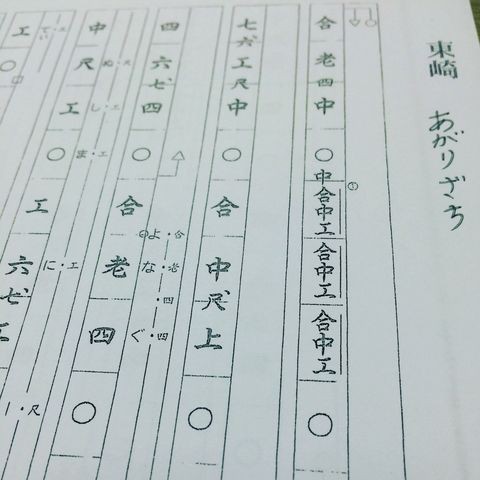 東崎 あがりざち
合老四中○中合中工合中工合中工○
①
七六工尺中○合中尺上○
よ・合
な・老
・四
ぐ・四
四六七四○合老四○
ぬ・尺
し・工
ま・工
に・工
ー・尺
中尺工○工六七工
てぃ・工
工○